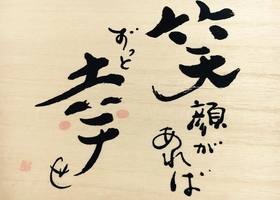 笑顔が
あれば
ずっと
幸せ